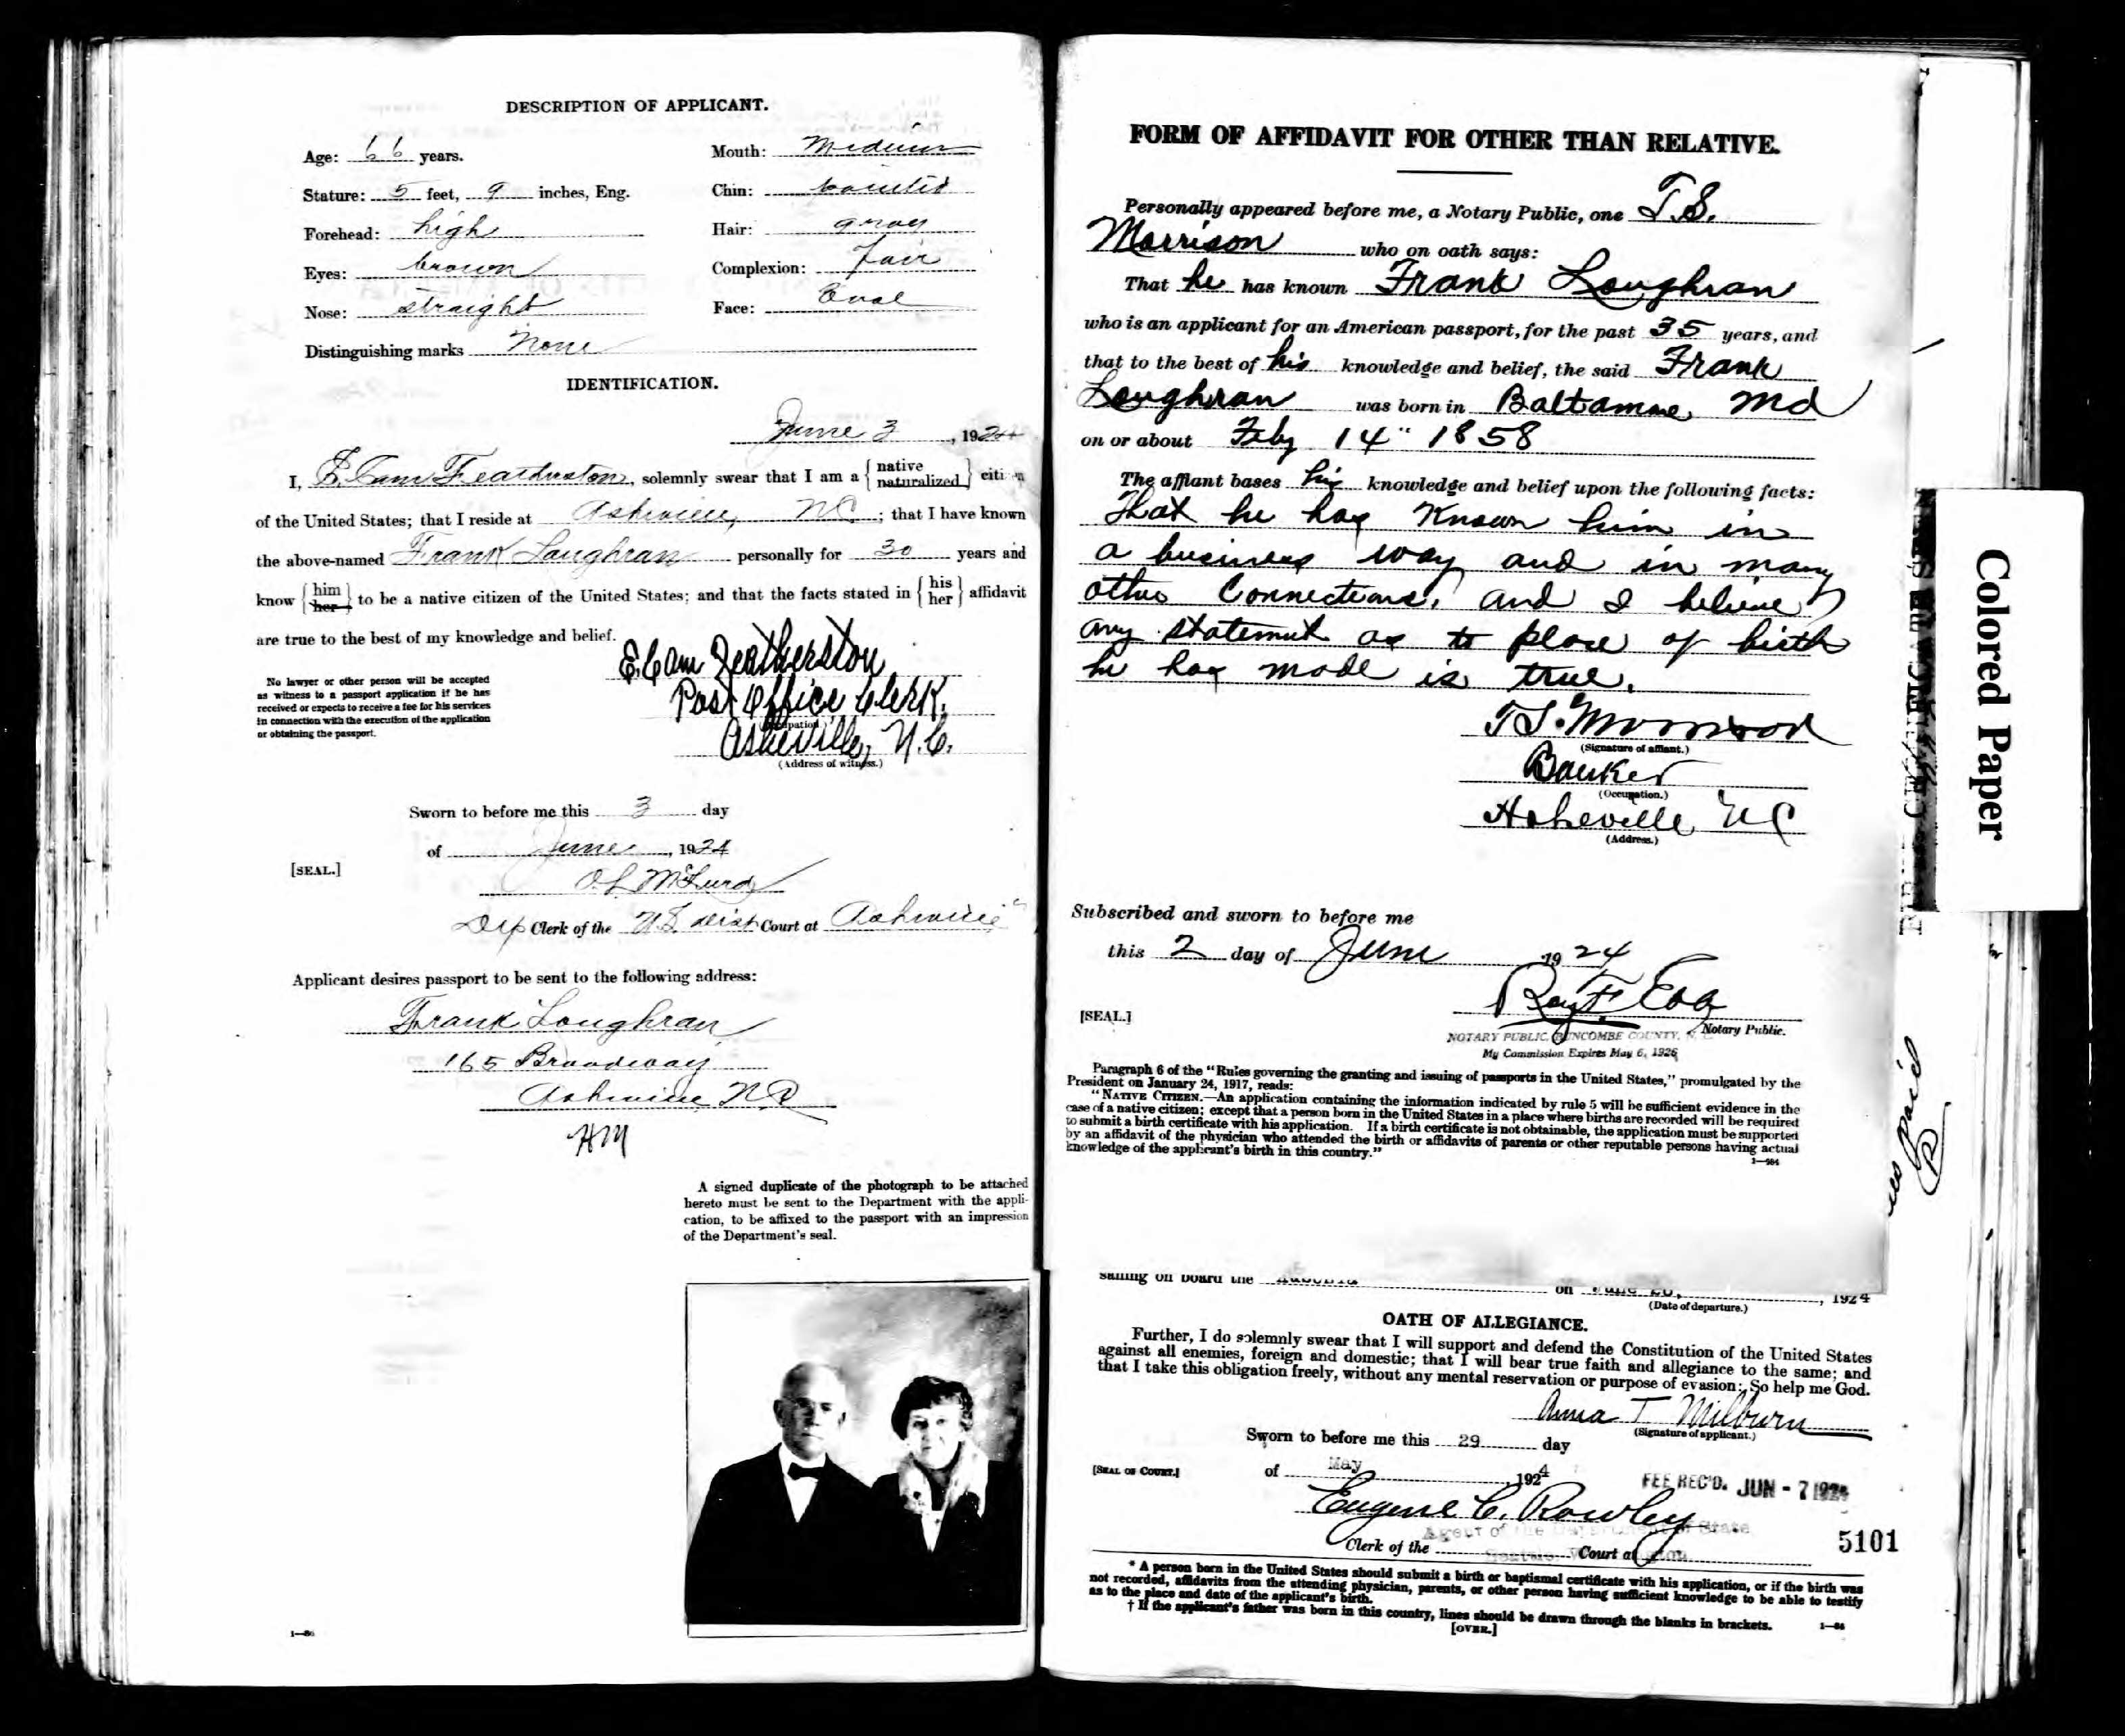 DESCRIPTION OF APPLICANT.
Age: 66 years.
Mouth: Medium
Stature: 5 feet, 9 inches, Eng.
Chin: pointed
Forehead: high
Hair: gray
Eyes: brown
Complexion: Fair
Nose: straight
Face: Oval
Distinguishing marks None
IDENTIFICATION.
June 3, 1924
I, E. Cam Featherston, solemnly swear that I am a {native naturalized} citi
of the United States; that I reside at Asheville, NC; that I have known
the above-named Frank Loughran personally for 30 years and
know {him her} to be a native citizen of the United States; and that the facts stated in {his her} affidavit
are true to the best of my knowledge and belief.
E. Cam Featherston
Post Office Clerk.
(Occupation.)
Asheville, N.C.
(Address of witness.)
No lawyer or other person will be accepted
as witness to a passport application if he has
received or expects to receive a fee for his services
in connection with the execution of the application
or obtaining the passport.
Sworn to before me this 3 day
of June, 1924
[SEAL.]
O.L. McLurd
Dep Clerk of the U.S. Dist Court at Asheville
Applicant desires passport to be sent to the following address:
Frank Loughran
165 Broadway
Asheville N.C
HM
A signed duplicate of the photograph to be attached
hereto must be sent to the Department with the appli-
cation, to be affixed to the passport with an impression
of the Department's seal.
FORM OF AFFIDAVIT FOR OTHER THAN RELATIVE.
Personally appeared before me, a Notary Public, one T.S.
Morrison who on oath says:
That he has known Frank Loughran
who is an applicant for an American passport, for the past 35 years, and
that to the best of his knowledge and belief, the said Frank
Loughran was born in Baltamore, Md
on or about Feby 14" 1858
The affiant bases his knowledge and belief upon the following facts:
That he has Known him in
a business way and in many
other Connections, and I believe
any statement as to place of birth
he has made is true.
T S. Morrison
(Signature of affiant.)
Banker
(Occupation.)
Asheville NC
(Address.)
Subscribed and sworn to before me
this 2 day of June 1924
[SEAL.]
Notary Public.
NOTARY PUBLIC, BUNCOMBE COUNTY, N. C.
My Commission Expires May 6, 1926
Paragraph 6 of the "Rules governing the granting and issuing of passports in the United States," promulgated by the
President on January 24, 1917, reads:
"NATIVE CITIZEN.—An application containing the information indicated by rule 5 will be sufficient evidence in the
case of a native citizen; except that a person born in the United States in a place where births are recorded will be required
to submit a birth certificate with his application. If a birth certificate is not obtainable, the application must be supported
by an affidavit of the physician who attended the birth or affidavits of parents or other reputable persons having actual
knowledge of the applicant's birth in this country."
sailing on board the on , 1924
(Date of departure.)
OATH OF ALLEGIANCE.
Further, I do solemnly swear that I will support and defend the Constitution of the United States
against all enemies, foreign and domestic; that I will bear true faith and allegiance to the same; and
that I take this obligation freely, without any mental reservation or purpose of evasion: So help me God.
Anna T Milburn
(Signature of applicant.)
Sworn to before me this 29 day
[SEAL OF COURT.]
of May, 1924
FEE REC'D. JUN - 7 1924
Eugene C. Rowley
Agent of the Department of State
Clerk of the Court at
5101
* A person born in the United States should submit a birth or baptismal certificate with his application, or if the birth was
not recorded, affidavits from the attending physician, parents, or other person having sufficient knowledge to be able to testify
as to the place and date of the applicant's birth.
† If the applicant's father was born in this country, lines should be drawn through the blanks in brackets.
[OVER.]
Colored Paper
paid